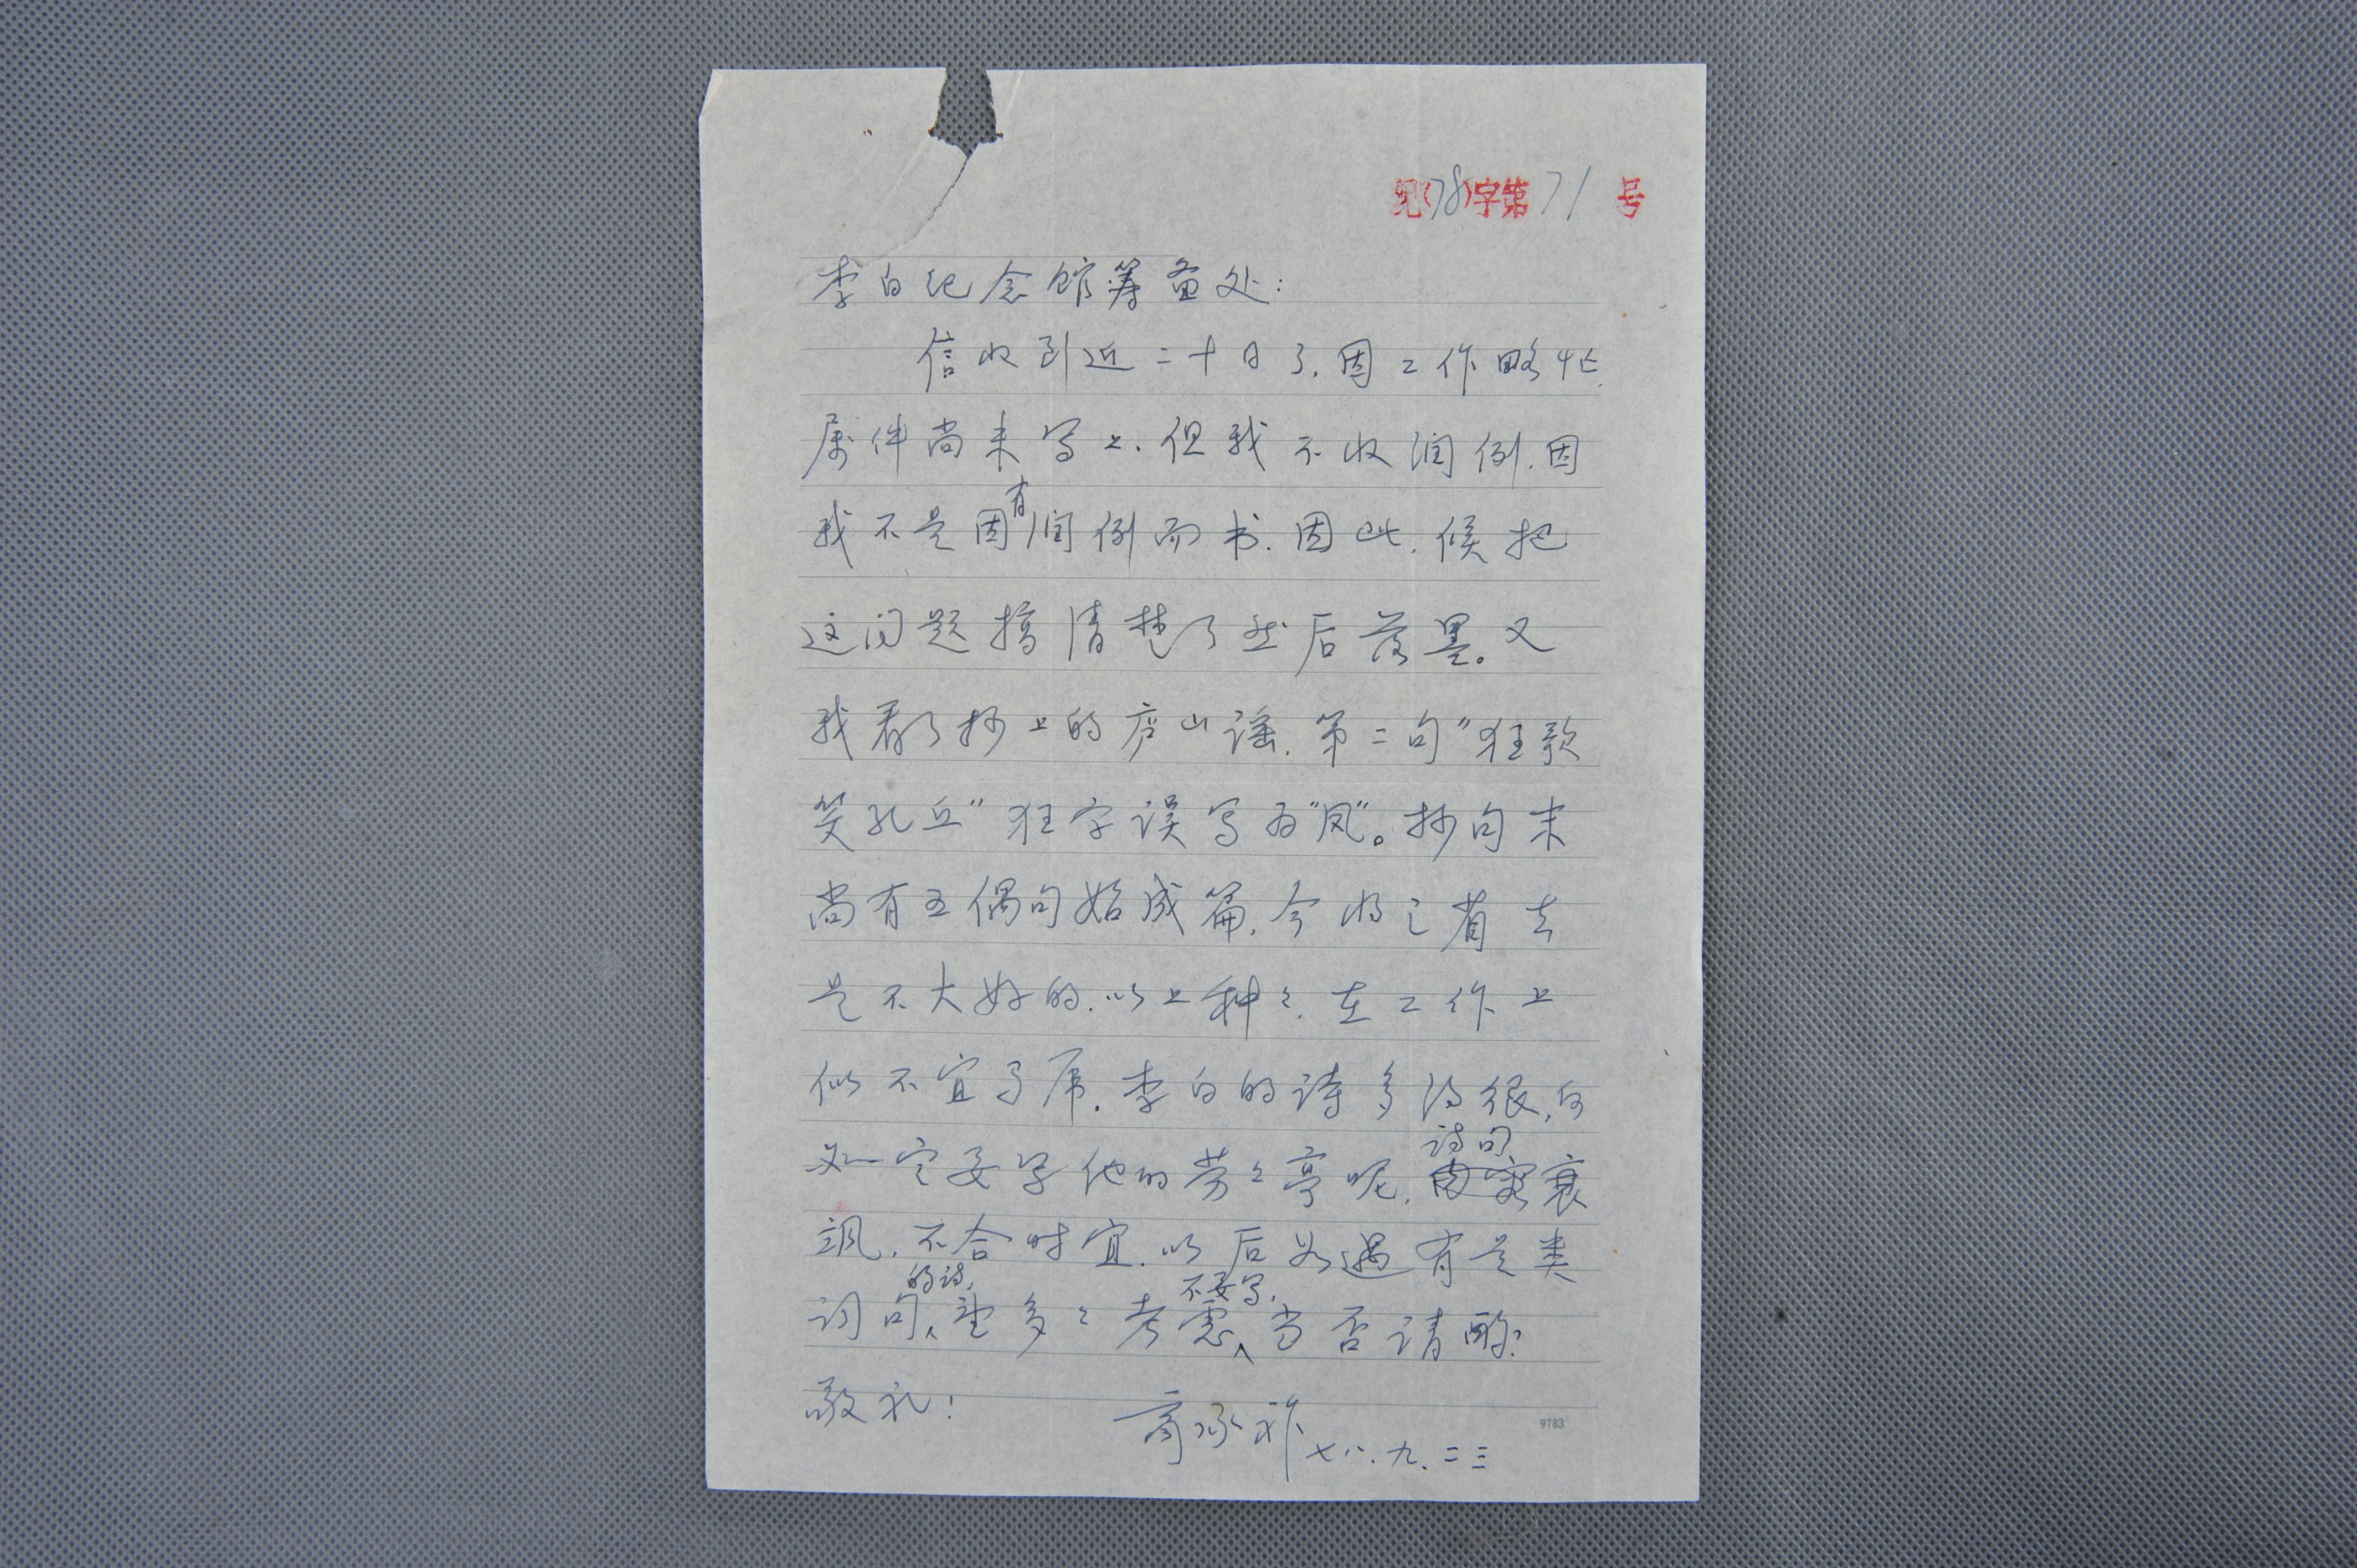 纪(78)字第71号
李白纪念馆筹备处：
信收到近二十日了.因工作略忙.
属件尚未写上.但我不收润例.因
我不是因有润例而书.因此.候把
这问题搞清楚了然后落墨。又
我看了抄上的庐山谣.第二句"狂歌
笑孔丘"狂字误写为"凤"。抄句末
尚有五偶句始成篇.今将之省去
是不大好的.以上种々.在工作上
似不宜了草.李白的诗多得很,何
必一定要写他的劳々亭呢.诗句衰
飒.不合时宜.以后如遇有是类
词句的诗,望多々考虑不要写,当否请酌.
敬礼!
商承祚 七八.九.二三
9783